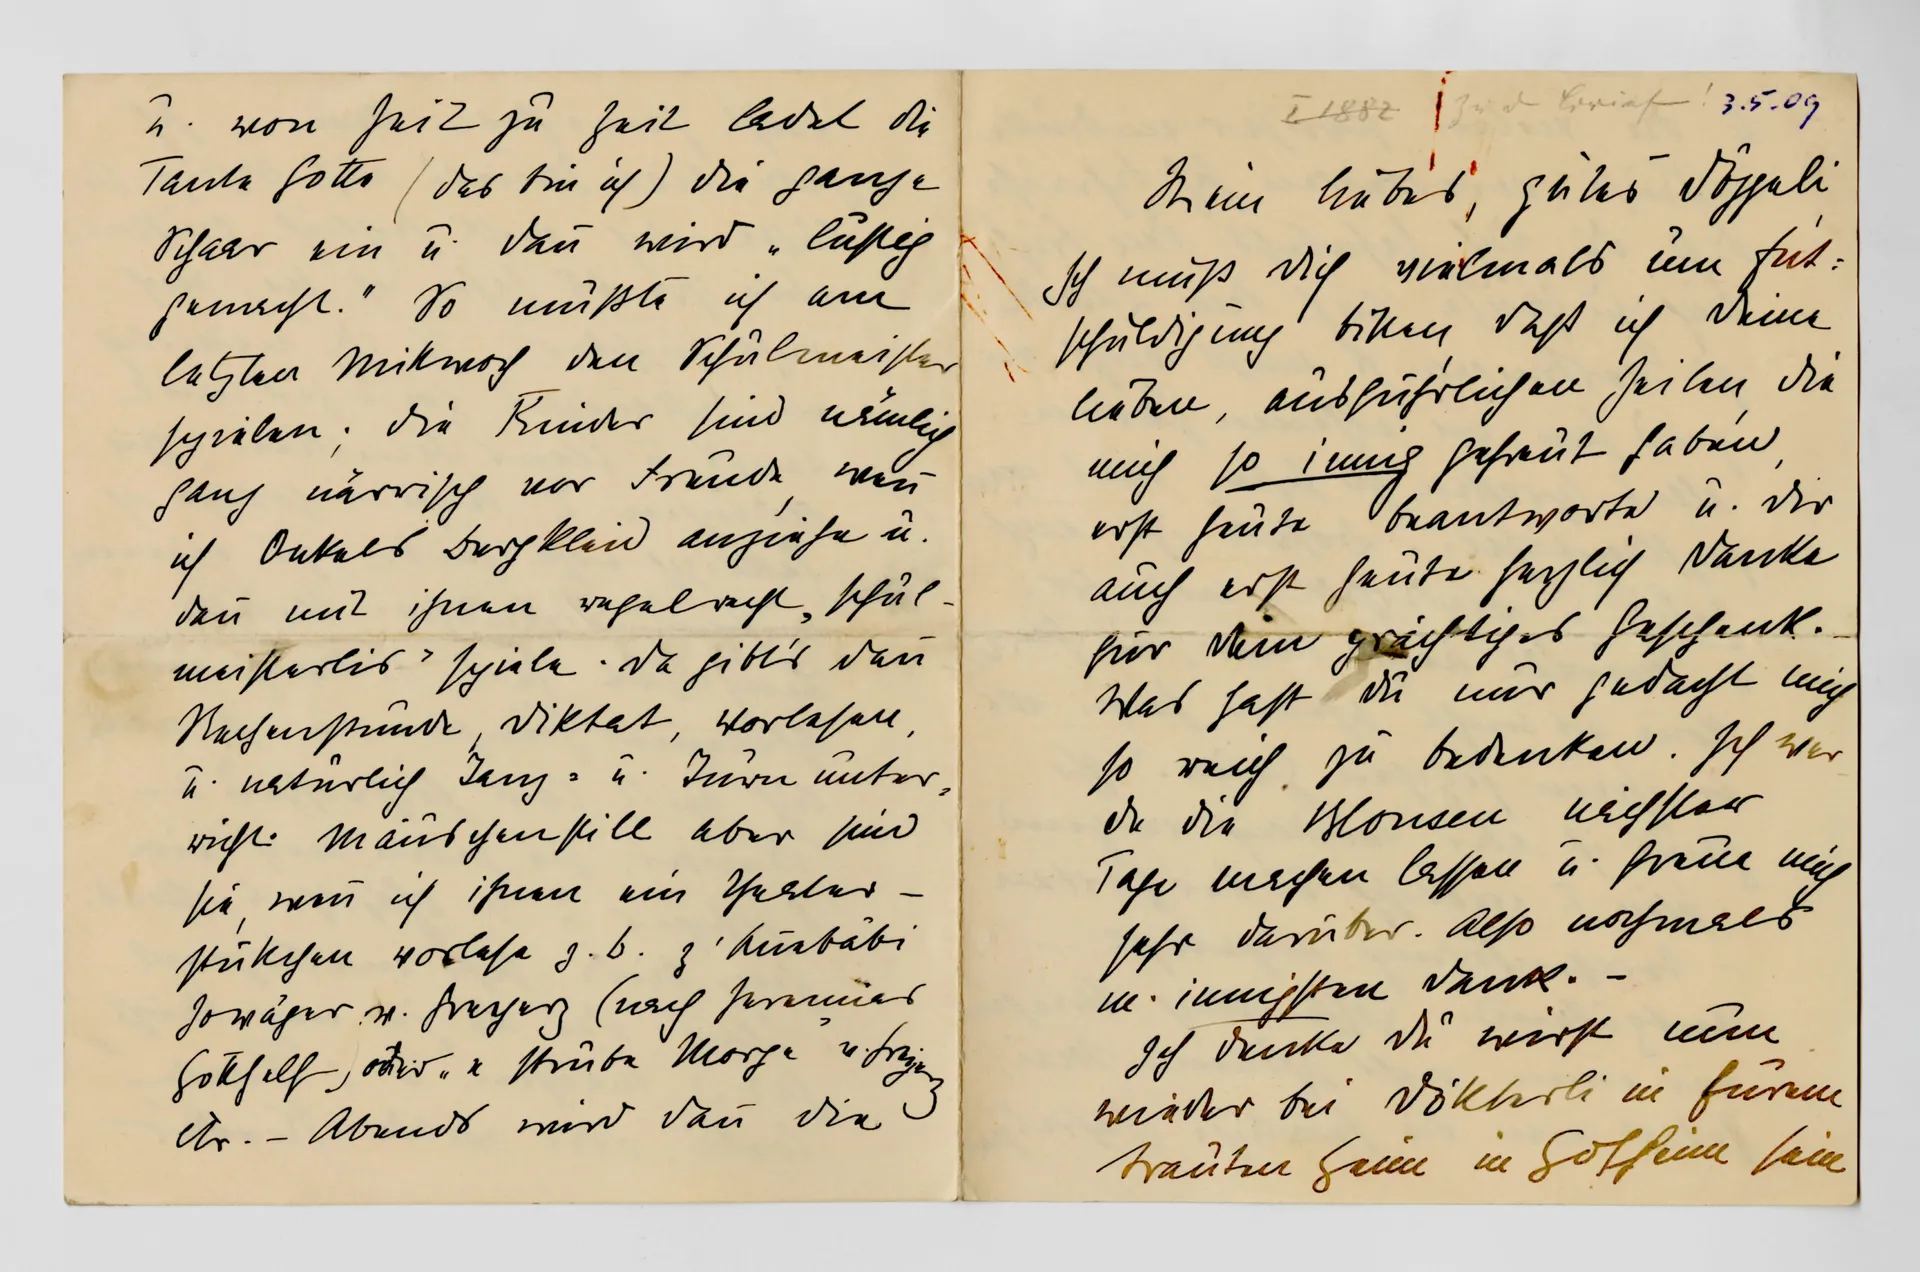 u. von Zeit zu Zeit ladet die
Tante Gotte (das bin ich) die ganze
Schaar ein u. dan̄ wird „lustig
gemacht." So mußte ich am
letzten Mittwoch den Schulmeister
spielen; die Kinder sind nämlich
ganz närrisch vor Freude, wen̄
ich Onkels Bergkleid anziehe u.
dan̄ mit ihnen regelrecht „schul-
meisterlis" spiele. Da gibt's dan̄
Rechenstunde, Diktat, Vorlesen,
u. natürlich Tanz= u. Turnunter=
richt. Mäuschenstill aber sind
sie, wen̄ ich ihnen ein Theater-
stükchen vorlese z. b. z'Annebäbi
Jowäger v. Greyerz (nach Jeremias
Gotthelf) oder „e strube Morge" v. Greyerz
etc. – Abends wird dan̄ die
I 1882 3.5.09
Mein liebes, gutes Döggeli,
Ich muß Dich vielmals um Ent=
schuldigung bitten daß ich Deine
lieben, ausführlichen Zeilen, die
mich so innig gefreut haben,
erst heute beantworte u. Dir
auch erst heute herzlich danke
für Dein prächtiges Geschenk.
Was hast Du nur gedacht mich
so reich zu bedenken. Ich wer
de die Blousen nächster
Tage machen lassen u. freue mich
sehr darüber. Also nochmals
m. innigsten Dank. –
Ich denke Du wirst nun
wieder bei Dökterli in Eurem
trauten Heim in Hölstein sein